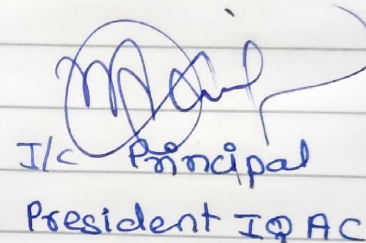 I/c Principal
President IQAC